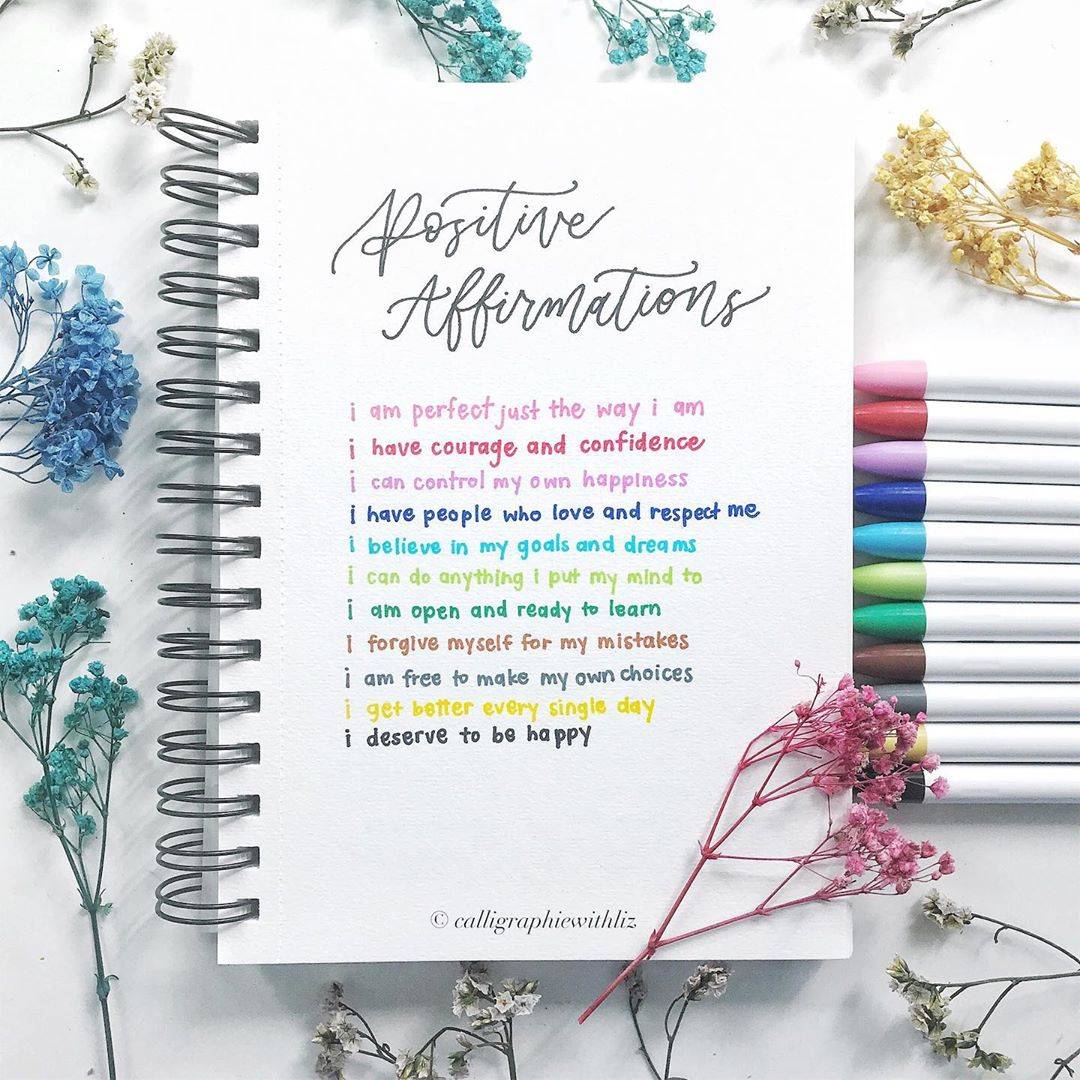 Positive
Affirmations
i am perfect just the way i am
i have courage and confidence
i can control my own happiness
i have people who love and respect me
i believe in my goals and dreams
i can do anything i put my mind to
i am open and ready to learn
i forgive myself for my mistakes
i am free to make my own choices
i get better every single day
i deserve to be happy
© calligraphiewithliz